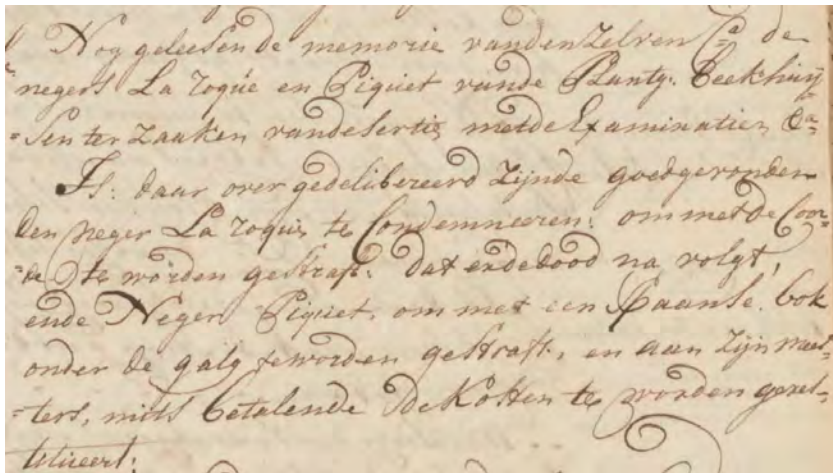 Nog geleesen de memorie vanden zelven C=a de
negers La Roque en Piquet vande Plantg: Beekhuij
=sen ter zaaken van desertie, met de Examinatien C=a
Is: daar over gedelibereerd zijnde goedgevonden
den neger La Roque, te Condemneeren: om met de Coor=
=de te worden gestraft: dat er de dood na volgt,
ende Neger Piquet, om met een Spaanse bok
onder de galg te worden gestraft, en aan zijn mees=
=ters, mits betalende de Kosten te worden geres=
titueert: